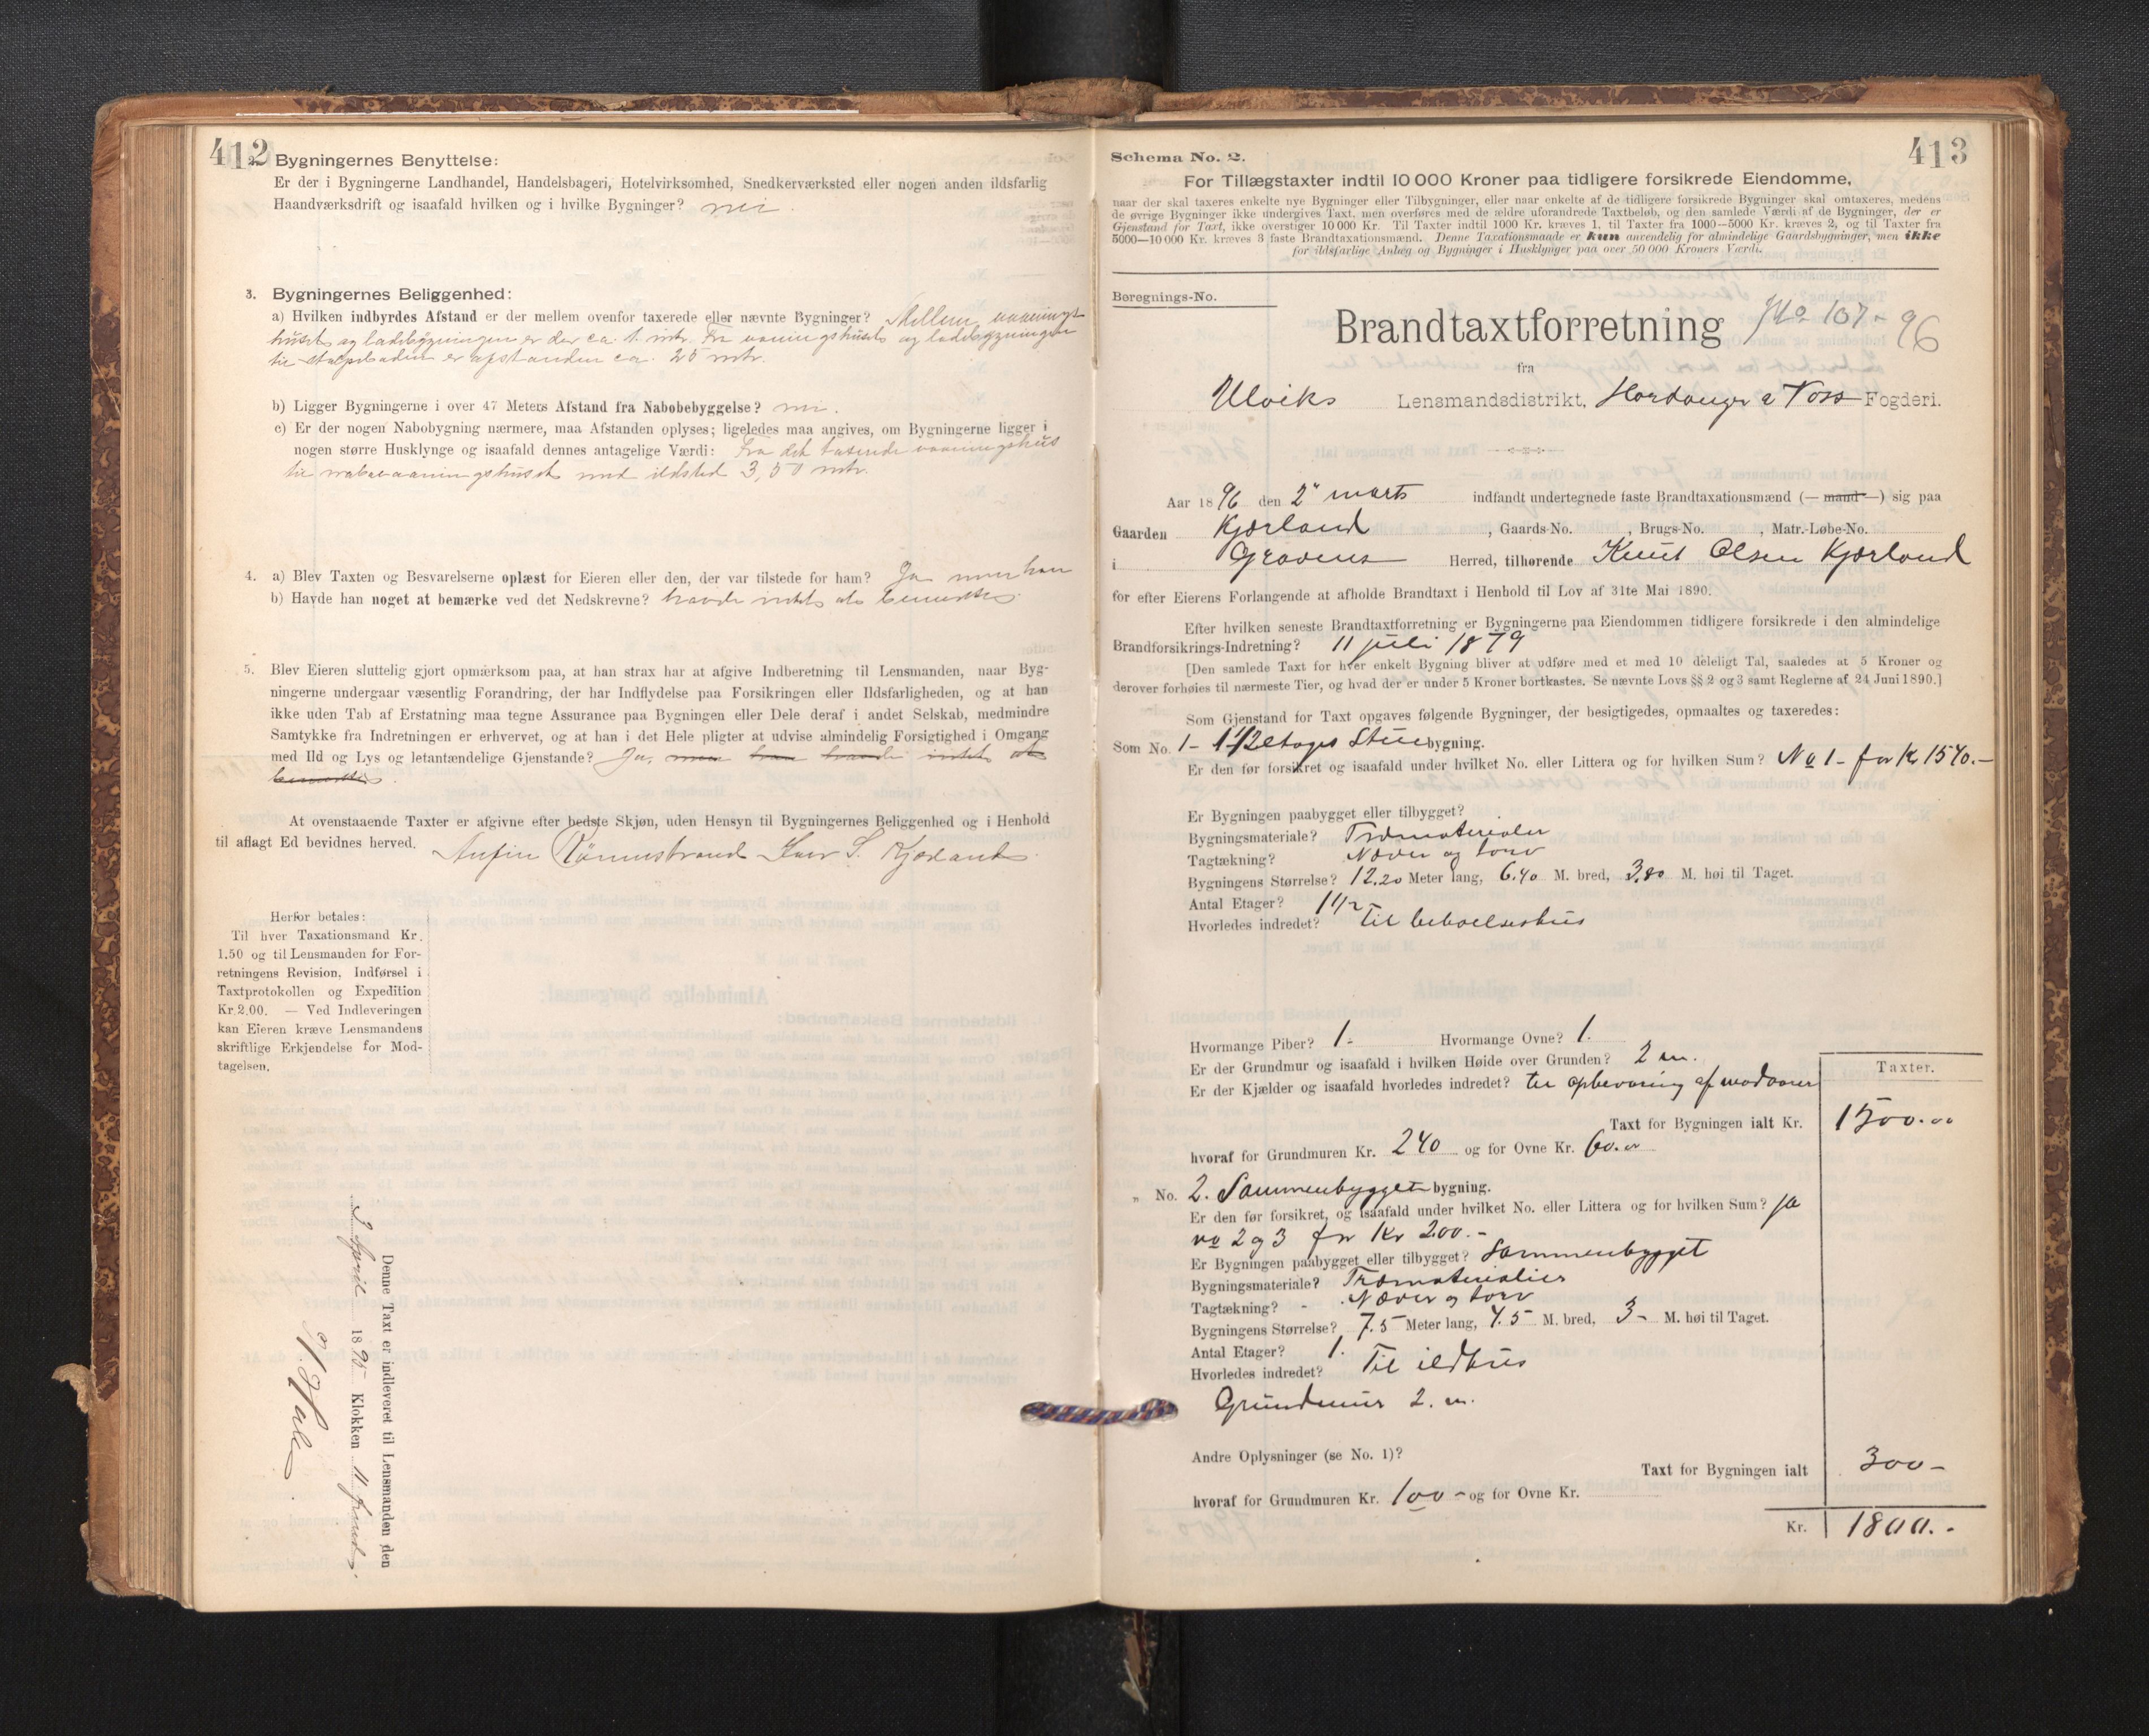 412
Bygningernes Benyttelse:
Er der i Bygningerne Landhandel, Handelsbageri, Hotelvirksomhed, Snedkerværksted eller nogen anden ildsfarlig
Haandværksdrift og isaafald hvilken og i hvilke Bygninger? nei.
3. Bygningernes Beliggenhed:
a) Hvilken indbyrdes Afstand er der mellem ovenfor taxerede eller nævnte Bygninger? Mellem vaanings
huset og ladebygningen er der ca. 1 mtr. Fra vaaningshuset og ladebygningen
til stolpeboden er afstanden ca. 25 mtr.
b) Ligger Bygningerne i over 47 Meters Afstand fra Nabobebyggelse? nei.
c) Er der nogen Nabobygning nærmere, maa Afstanden oplyses; ligeledes maa angives, om Bygningerne ligger i
nogen større Husklynge og isaafald dennes antagelige Værdi: Fra det taxerede vaaningshus
til nabovaaningshuset med ildsted 3,50 mtr.
4. a) Blev Taxten og Besvarelserne oplæst for Eieren eller den, der var tilstede for ham? Ja men han
b) Havde han noget at bemærke ved det Nedskrevne? havde intet at bemærke.
5. Blev Eieren sluttelig gjort opmærksom paa, at han strax har at afgive Indberetning til Lensmanden, naar Byg-
ningerne undergaar væsentlig Forandring, der har Indflydelse paa Forsikringen eller Ildsfarligheden, og at han
ikke uden Tab af Erstatning maa tegne Assurance paa Bygningen eller Dele deraf i andet Selskab, medmindre
Samtykke fra Indretningen er erhvervet, og at han i det Hele pligter at udvise almindelig Forsigtighed i Omgang
med Ild og Lys og letantændelige Gjenstande? Ja, men han havde intet at
bemærke.
At ovenstaaende Taxter er afgivne efter bedste Skjøn, uden Hensyn til Bygningernes Beliggenhed og i Henhold
til aflagt Ed bevidnes herved. Anfin Rønnestrand Iver S. Kjærland.
Herfor betales:
Til hver Taxationsmand Kr.
1.50 og til Lensmanden for For-
retningens Revision, Indførsel i
Taxtprotokollen og Expedition
Kr. 2.00. — Ved Indleveringen
kan Eieren kræve Lensmandens
skriftlige Erkjendelse for Mod-
tagelsen.
Denne Taxt er indleveret til Lensmanden den
2 April 1895 Klokken 11 formd.
413
Schema No. 2.
For Tillægstaxter indtil 10 000 Kroner paa tidligere forsikrede Eiendomme,
naar der skal taxeres enkelte nye Bygninger eller Tilbygninger, eller naar enkelte af de tidligere forsikrede Bygninger skal omtaxeres, medens
de øvrige Bygninger ikke undergives Taxt, men overføres med de ældre uforandrede Taxtbeløb, og den samlede Værdi af de Bygninger, der er
Gjenstand for Taxt, ikke overstiger 10 000 Kr. Til Taxter indtil 1000 Kr. kræves 1, til Taxter fra 1000—5000 Kr. kræves 2, og til Taxter fra
5000—10 000 Kr. kræves 3 faste Brandtaxationsmænd. Denne Taxationsmaade er kun anvendelig for almindelige Gaardsbygninger, men ikke
for ildsfarlige Anlæg og Bygninger i Husklynger paa over 50 000 Kroners Værdi.
Beregnings-No.
Brandtaxtforretning No 107-96
fra
Ulviks Lensmandsdistrikt, Hardanger & Voss Fogderi.
Aar 1896 den 2 marts indfandt undertegnede faste Brandtaxationsmænd (— mand —) sig paa
Gaarden Kjærland, Gaards-No. , Brugs-No. , Matr.-Løbe-No.
i Gravens Herred, tilhørende Knut Olsen Kjærland
for efter Eierens Forlangende at afholde Brandtaxt i Henhold til Lov af 31te Mai 1890.
Efter hvilken seneste Brandtaxtforretning er Bygningerne paa Eiendommen tidligere forsikrede i den almindelige
Brandforsikrings-Indretning? 11 juli 1879
[Den samlede Taxt for hver enkelt Bygning bliver at udføre med et med 10 deleligt Tal, saaledes at 5 Kroner og
derover forhøies til nærmeste Tier, og hvad der er under 5 Kroner bortkastes. Se nævnte Lovs §§ 2 og 3 samt Reglerne af 24 Juni 1890.]
Som Gjenstand for Taxt opgaves følgende Bygninger, der besigtigedes, opmaaltes og taxeredes:
Som No. 1- 1 1/2 etages Stuebygning.
Er den før forsikret og isaafald under hvilket No. eller Littera og for hvilken Sum? No 1- for Kr 1570.-
Er Bygningen paabygget eller tilbygget?
Bygningsmateriale? Træmaterialer
Tagtækning? Næver og torv
Bygningens Størrelse? 12.20 Meter lang, 6.40 M. bred, 3.80 M. høi til Taget.
Antal Etager? 1 1/2
Hvorledes indredet? Til beboelseshus
Hvormange Piber? 1- Hvormange Ovne? 1.
Er der Grundmur og isaafald i hvilken Høide over Grunden? 2 m.
Er der Kjælder og isaafald hvorledes indredet? til opbevaring af madvarer
Taxter.
Taxt for Bygningen ialt Kr. 1500.00
hvoraf for Grundmuren Kr. 240 og for Ovne Kr. 60.00
„ No. 2. Sammenbyggetbygning.
Er den før forsikret, og isaafald under hvilket No. eller Littera og for hvilken Sum? ja
no 2 og 3 for Kr 200.-
Er Bygningen paabygget eller tilbygget? Sammenbygget
Bygningsmateriale? Træmaterialier
Tagtækning? - Næver og torv
Bygningens Størrelse? 7.5 Meter lang, 4.5 M. bred, 3- M. høi til Taget.
Antal Etager? 1.
Hvorledes indredet? Til ildhus
Grundmur 2. m.
Andre Oplysninger (se No. 1)?
Taxt for Bygningen ialt 300-
hvoraf for Grundmuren Kr. 100- og for Ovne Kr.
Kr. 1800.-